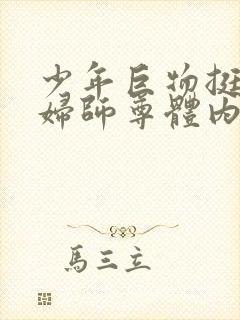 少年巨物挺
婦師尊體內
馬三立